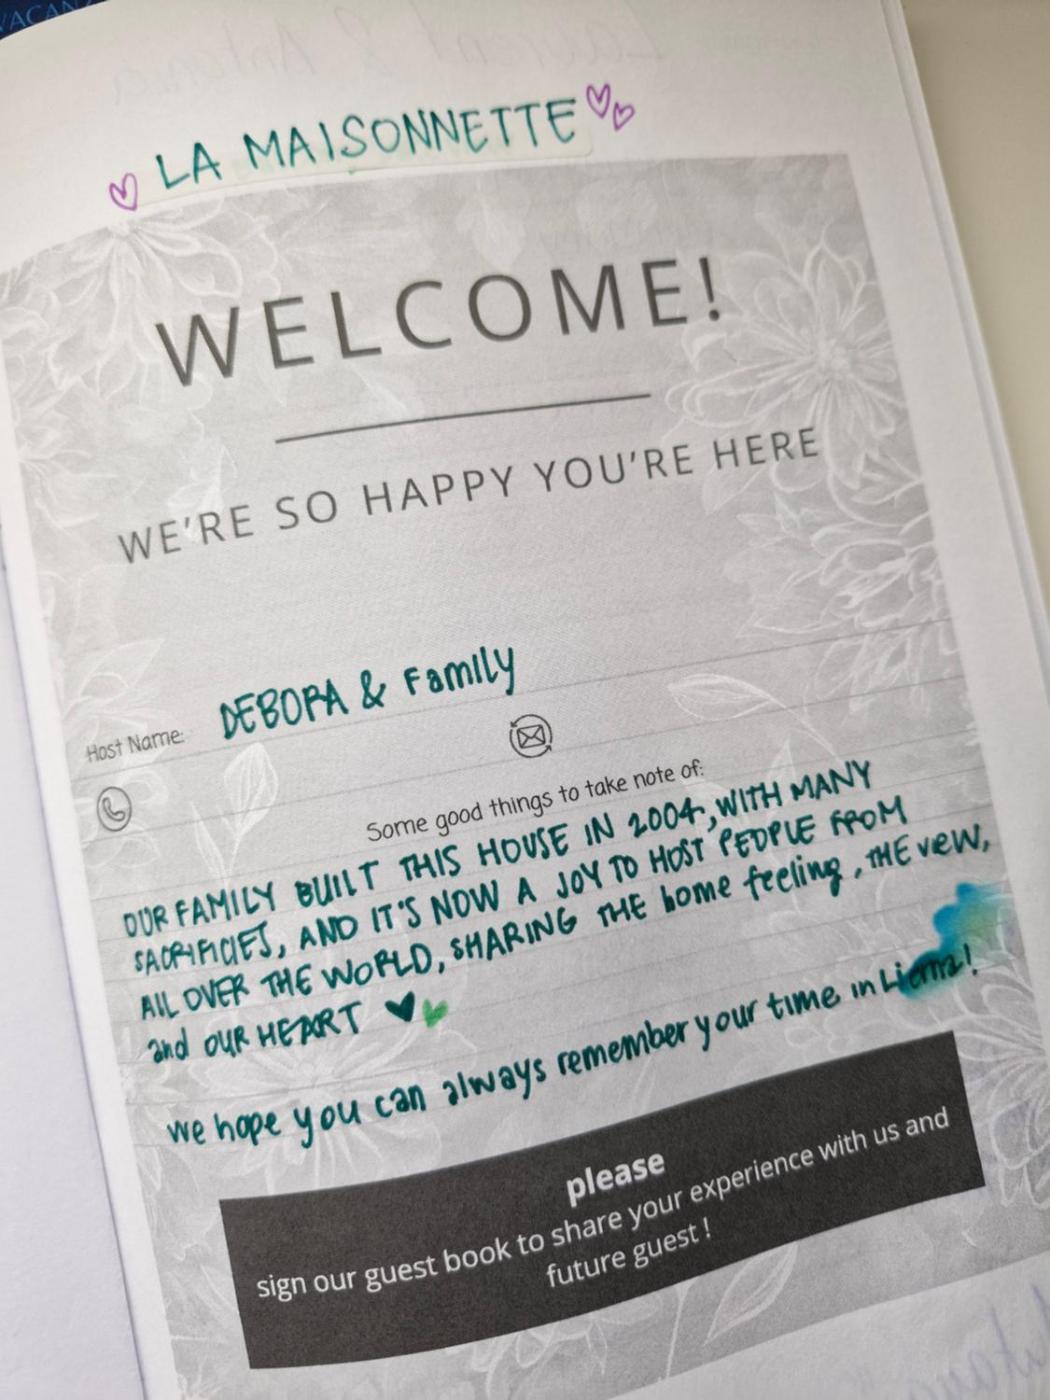 LA MAISONNETTE
WELCOME!
WE'RE SO HAPPY YOU'RE HERE
Host Name: DEBORA & FamIly
Some good things to take note of:
OUR FAMILY BUILT THIS HOUSE IN 2004, WITH MANY
SACRIFICIES, AND IT'S NOW A JOY TO HOST PEOPLE FROM
All OVER THE WORLD, SHARING THE home feeling, THE vew,
and OUR HEART
we hope you can always remember your time in
please
sign our guest book to share your experience with us and
future guest !